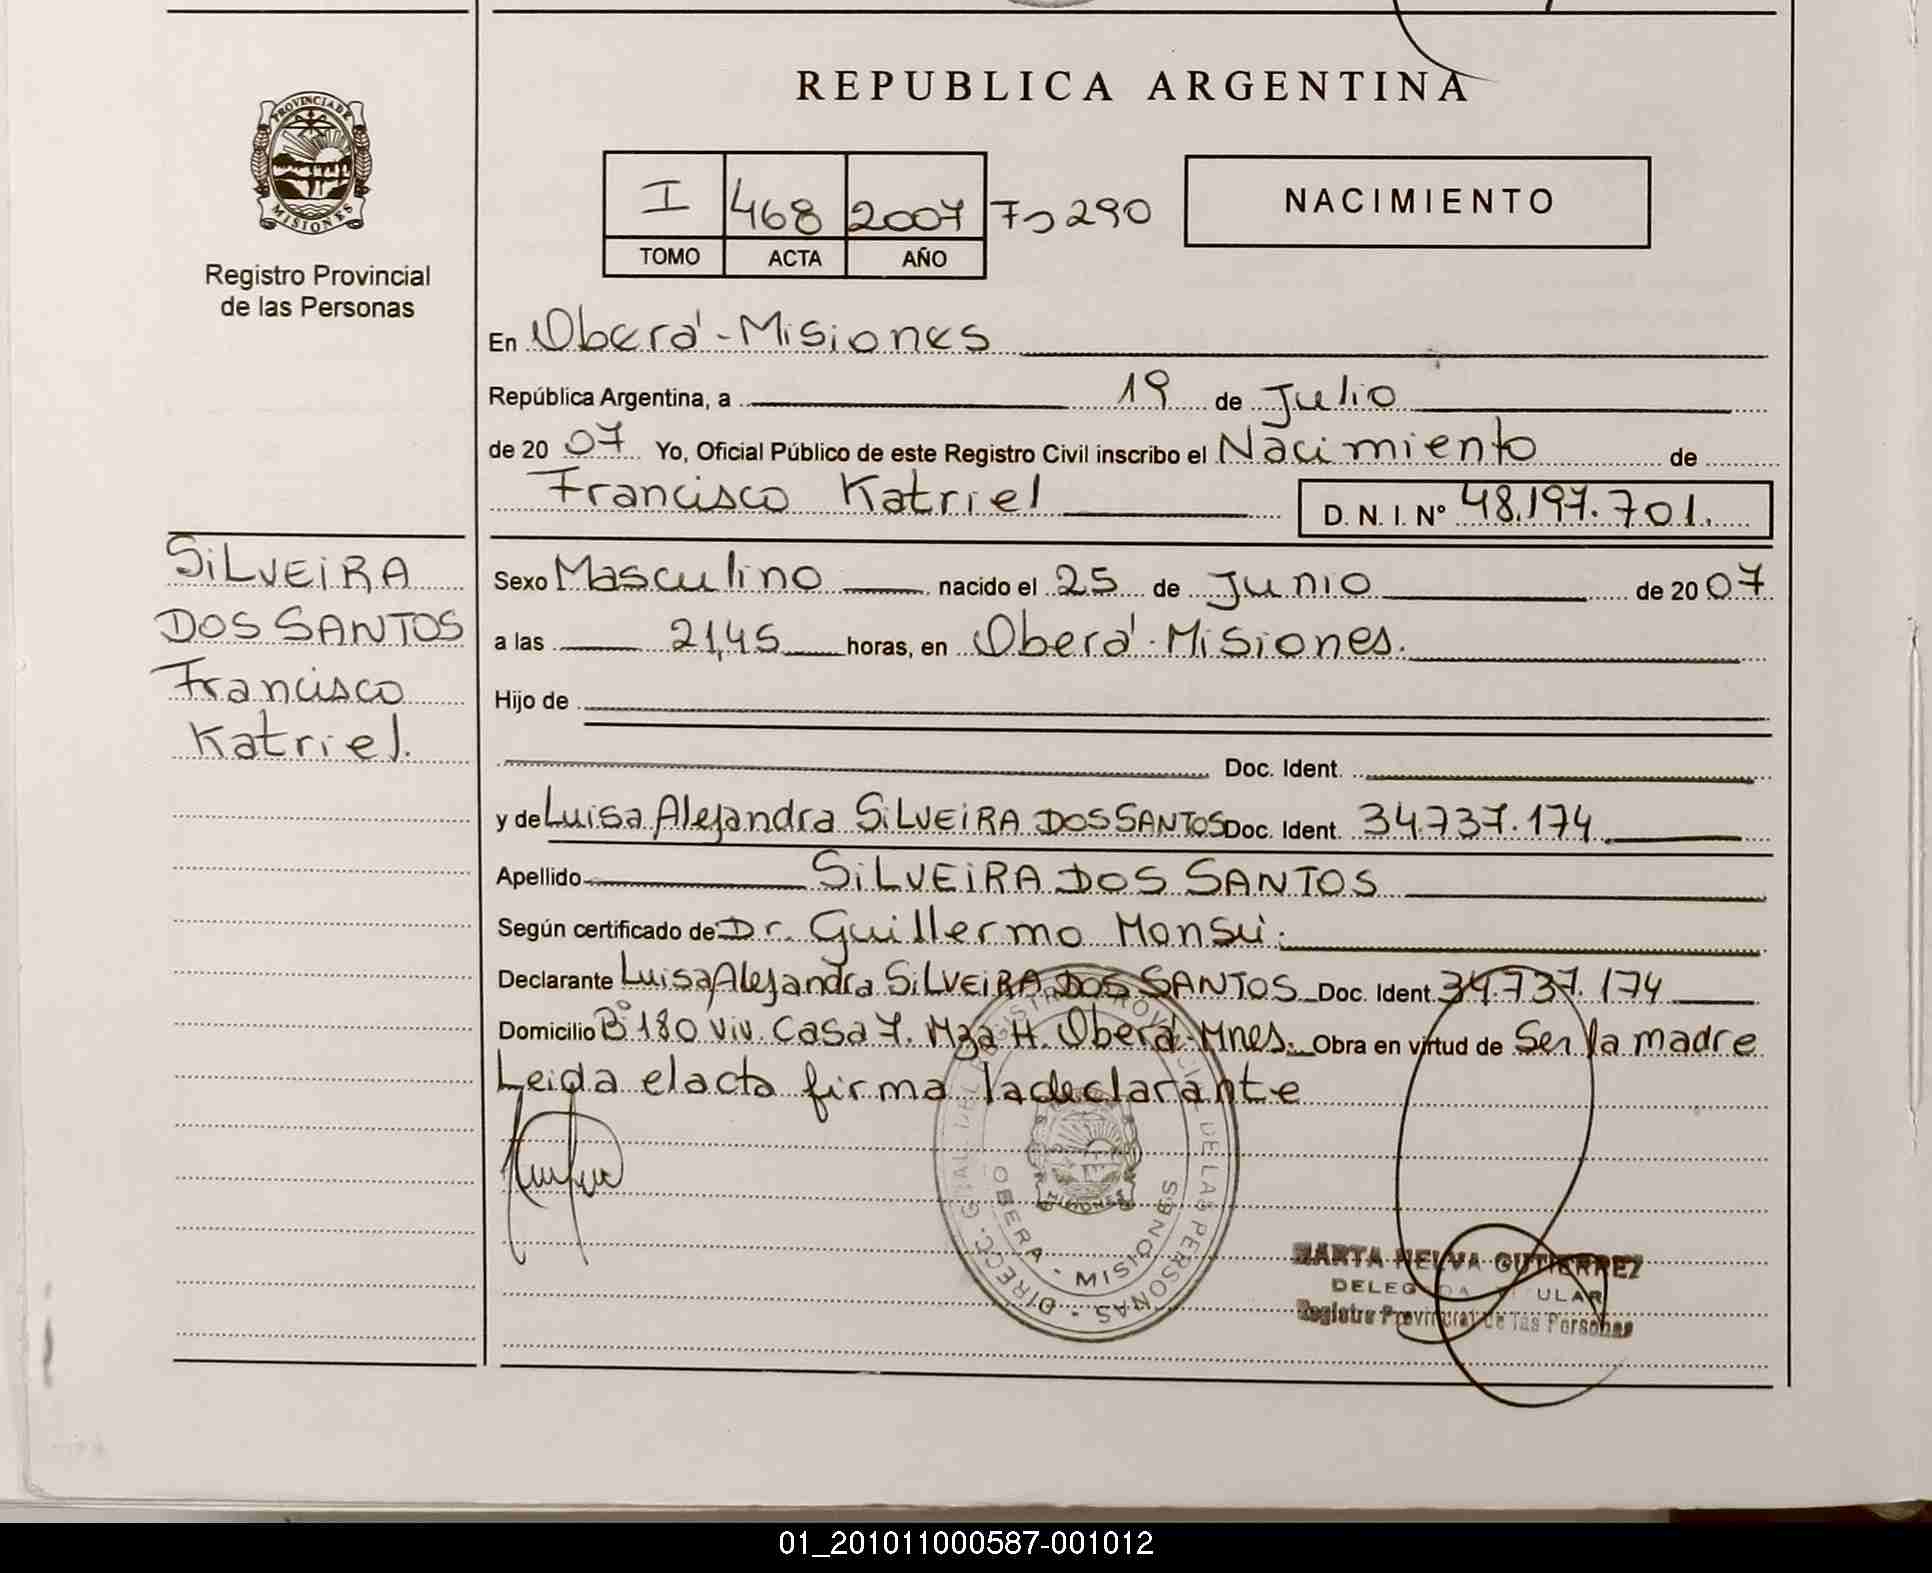 REPUBLICA ARGENTINA
PROVINCIA DE
MISIONES
Registro Provincial
de las Personas
I 468 2007 290
TOMO ACTA AÑO
NACIMIENTO
En Oberá - Misiones
República Argentina, a 19 de Julio
de 20 07 Yo, Oficial Público de este Registro Civil inscribo el Nacimiento de
Francisco Katriel D. N. I. Nº 48.197.701.
SiLVEiRA
DOS SANTOS
Francisco
Katriel.
Sexo Masculino nacido el 25 de Junio de 20 07
a las 21,45 horas, en Oberá - Misiones.
Hijo de
Doc. Ident.
y de Luisa Alejandra SiLVEiRA DOS SANTOS Doc. Ident. 34.737.174
Apellido SiLVEiRA DOS SANTOS
Según certificado de Dr. Guillermo Monsú.
Declarante Luisa Alejandra SiLVEiRA DOS SANTOS Doc. Ident. 34.737.174
Domicilio Bº 180 Viv. Casa 7. Mza H. Oberá - Mnes. Obra en virtud de Ser la madre
Leida el acta firma la declarante
DIRECC. GRAL. DEL REGISTRO PROVINCIAL DE LAS PERSONAS
OBERA - MISIONES
MISIONES
MARTA NELVA GUTIERREZ
DELEGADA TITULAR
Registro Provincial de las Personas
01_201011000587-001012